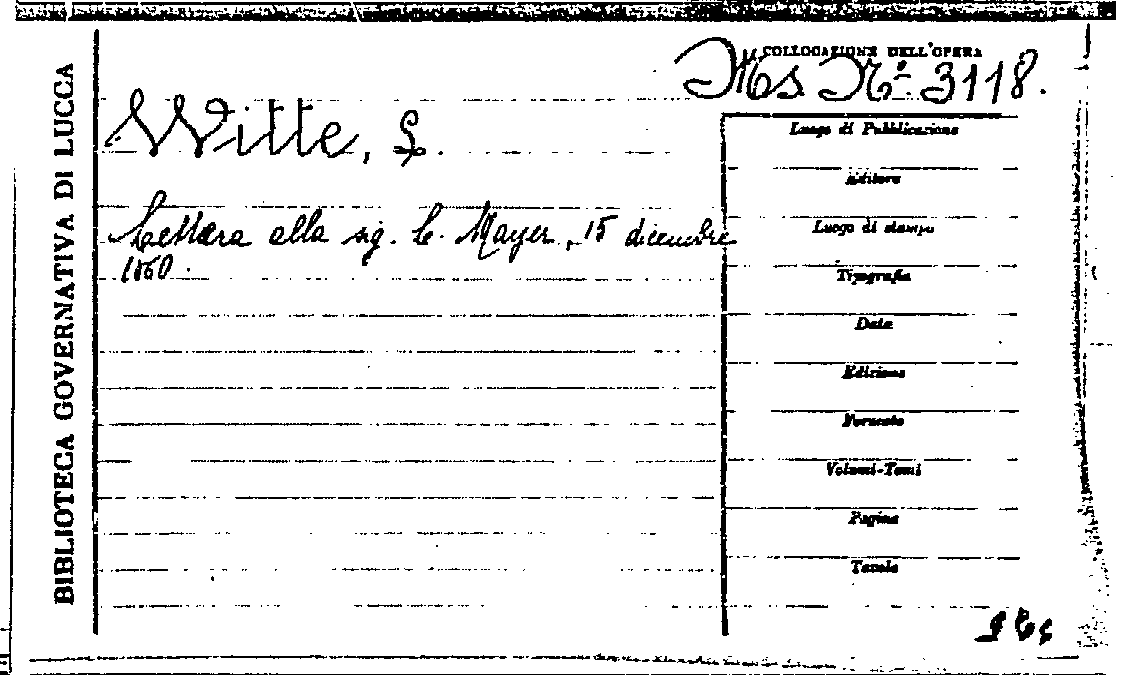 BIBLIOTECA GOVERNATIVA DI LUCCA
COLLOCAZIONE DELL'OPERA
Ms Nº 3118.
Witte,
Lettera alla sig. C. Mayer, 15 dicembre
1860.
Luogo di Pubblicazione
Editore
Luogo di stampa
Tipografia
Data
Edizione
Formato
Volumi-Tomi
Pagine
Tavole